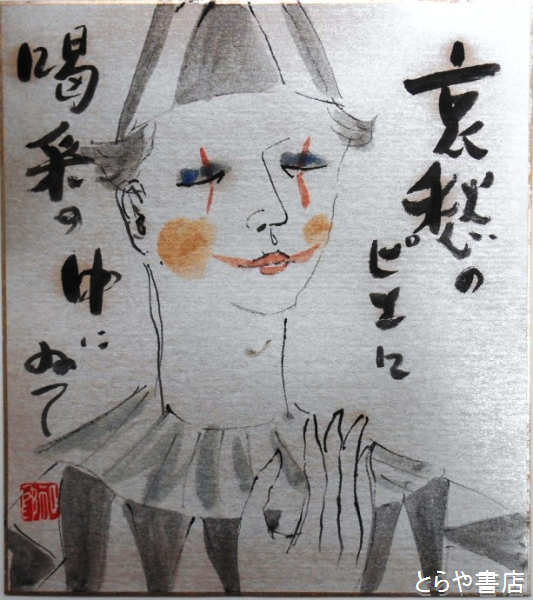 哀愁の
ピエロ
喝采の
中に
ゐて
とらや書店